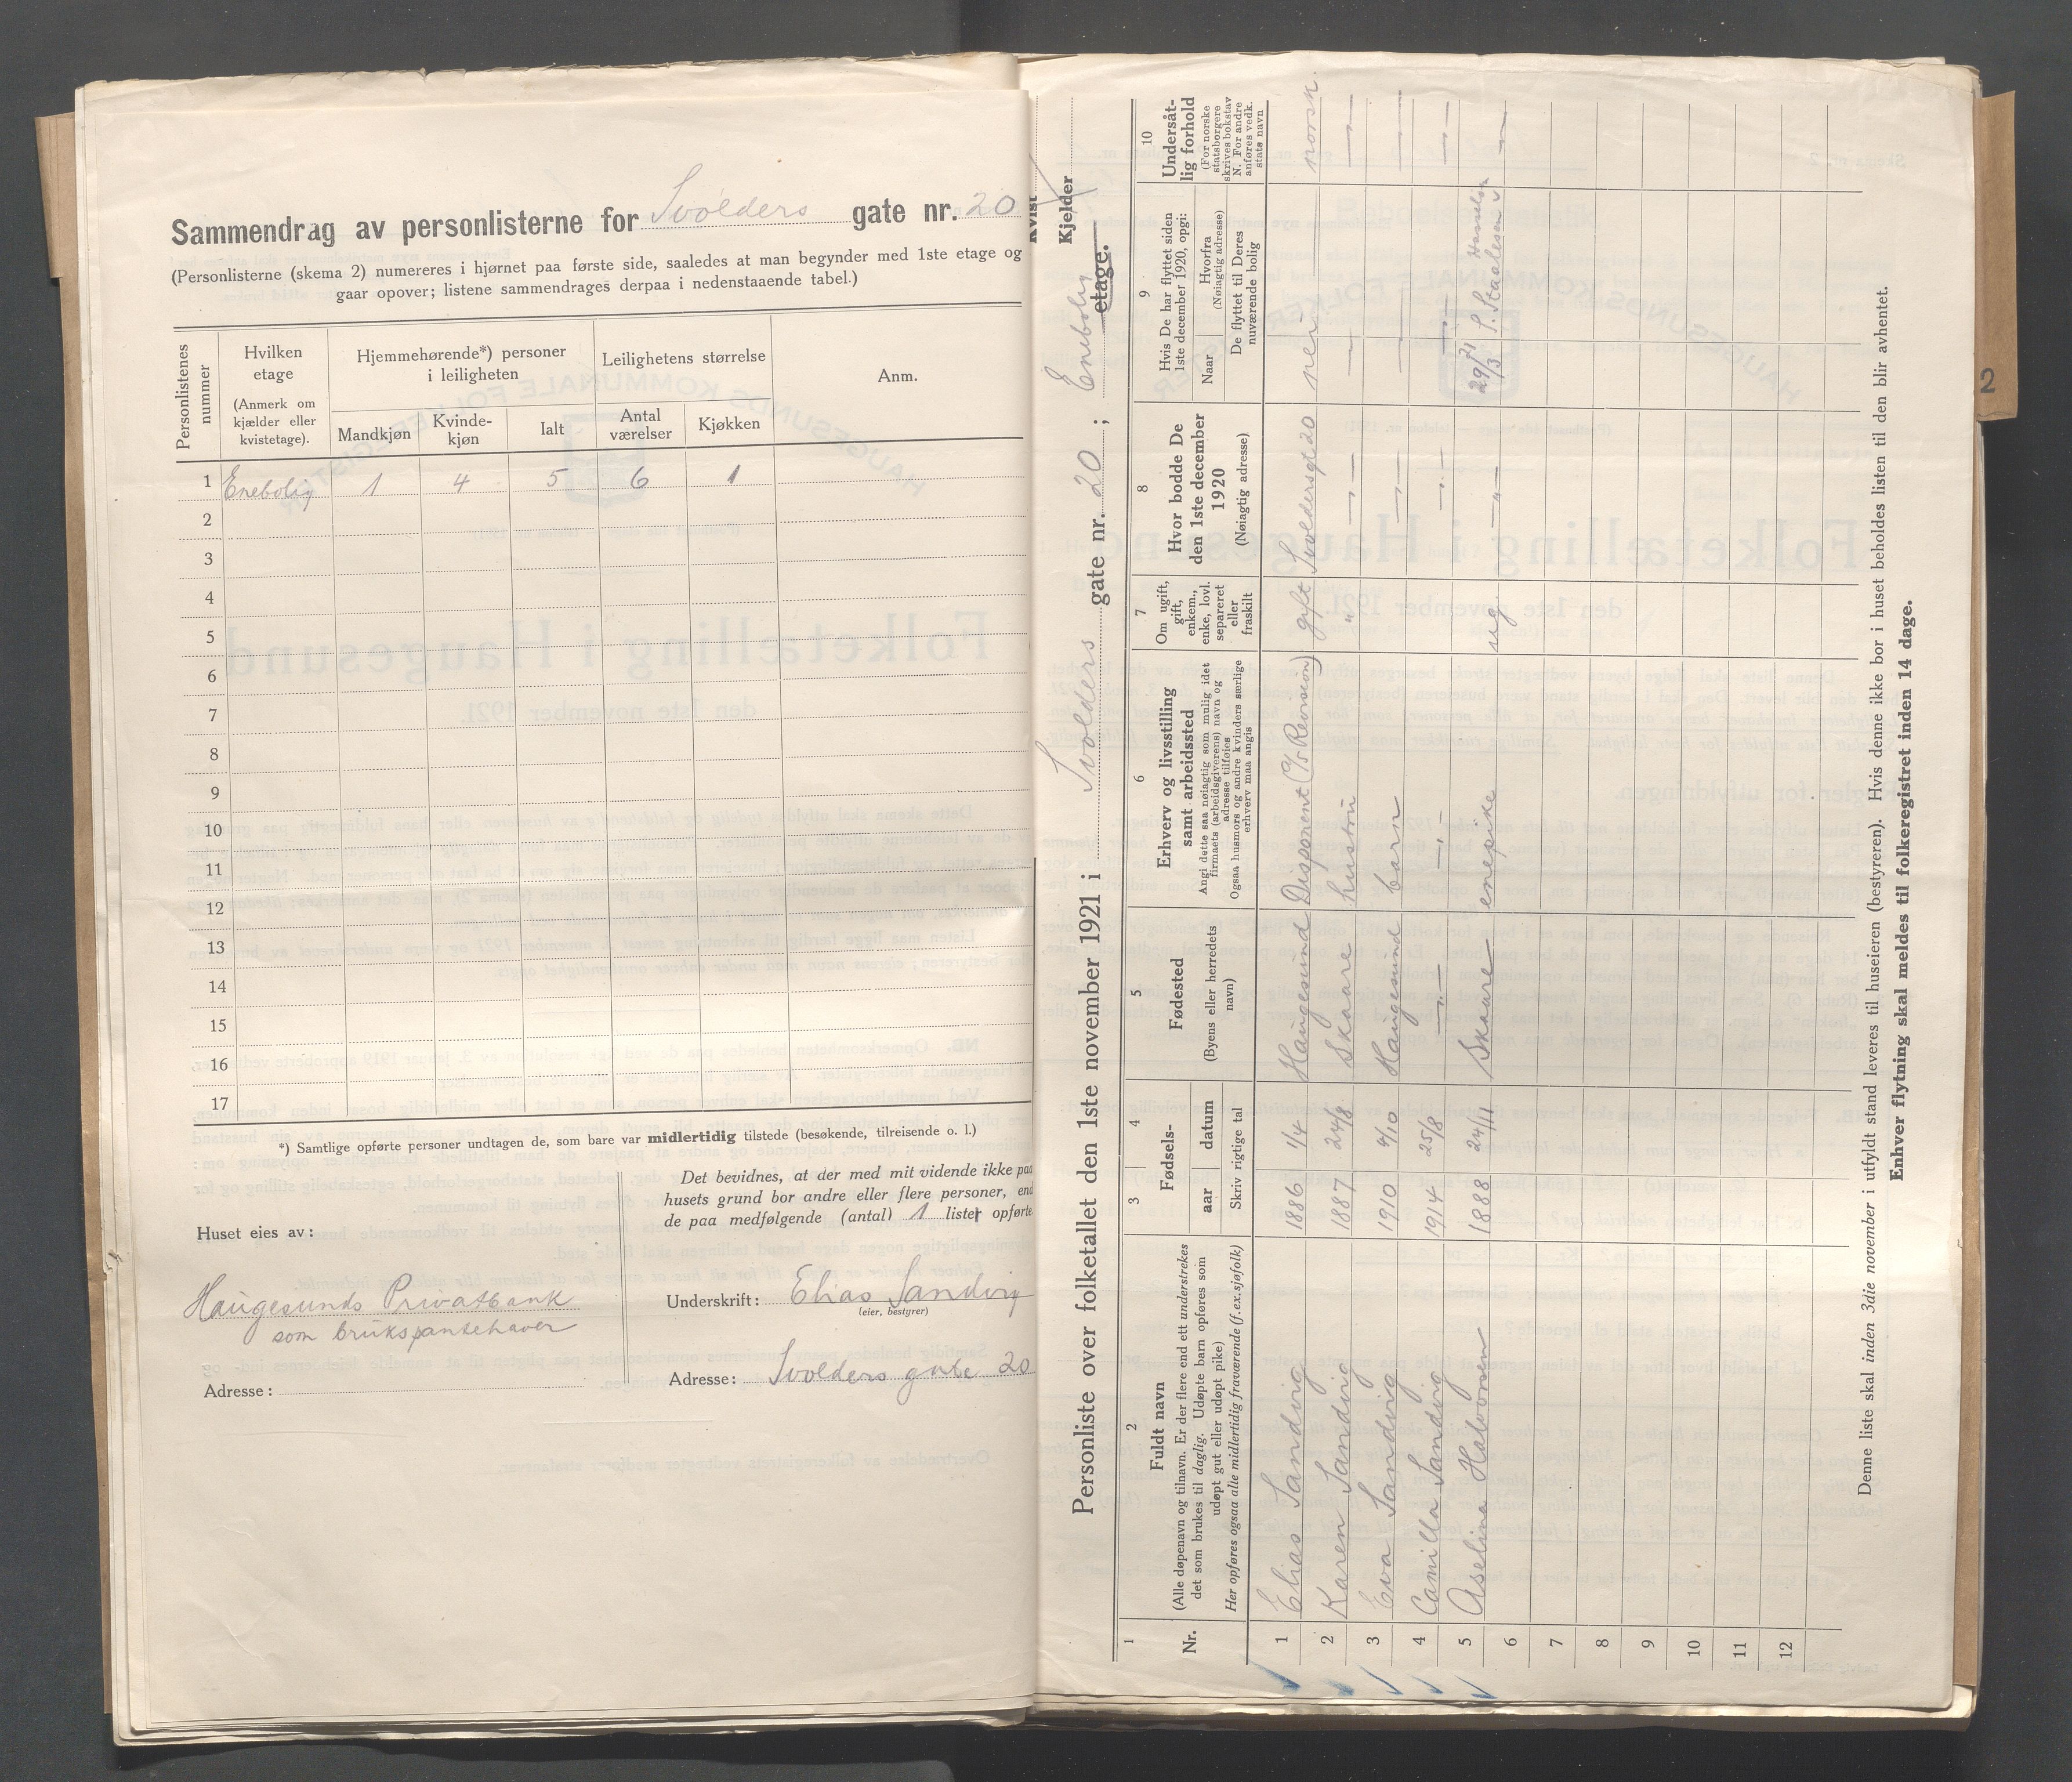 Sammendrag av personlisterne for Svolders gate nr. 20
(Personlisterne (skema 2) numereres i hjørnet paa første side, saaledes at man begynder med 1ste etage og
gaar opover; listene sammendrages derpaa i nedenstaaende tabel.)
Personlistenes nummer
Hvilken etage
(Anmerk om kjælder eller kvistetage).
Hjemmehørende*) personer i leiligheten
Leilighetens størrelse
Anm.
Mandkjøn
Kvinde-kjøn
Ialt
Antal værelser
Kjøkken
1 Enebolig 1 4 5 6 1
2
3
4
5
6
7
8
9
10
11
12
13
14
15
16
17
*) Samtlige opførte personer undtagen de, som bare var midlertidig tilstede (besøkende, tilreisende o. l.)
Det bevidnes, at der med mit vidende ikke paa
husets grund bor andre eller flere personer, end
de paa medfølgende (antal) 1 lister opførte
Huset eies av:
Haugesunds Privatbank
som brukspantehaver
Adresse:
Underskrift: Elias Sandvig
(eier, bestyrer)
Adresse: Svolders gate 20
Kvist
Kjelder
Personliste over folketallet den 1ste november 1921 i Svolders gate nr. 20; Enebolig etage.
1
Nr.
2
Fuldt navn
(Alle døpenavn og tilnavn. Er der flere end ett understrekes
det som brukes til daglig. Udøpte barn opføres som
udøpt gut eller udøpt pike)
Her opføres ogsaa alle midlertidig fraværende (f. ex. sjøfolk)
3 4
Fødsels-
aar datum
Skriv rigtige tal
5
Fødested
(Byens eller herredets navn)
6
Erhverv og livsstilling
samt arbeidssted
Angi dette saa nøiagtig som mulig idet
firmaets (arbeidsgiverens) navn og
adresse tilføies
Ogsaa husmors og andre kvinders særlige
erhverv maa angis
7
Om ugift,
gift,
enkem.,
enke, lovl.
separeret
eller
fraskilt
8
Hvor bodde De
den 1ste december
1920
(Nøiagtig adresse)
9
Hvis De har flyttet siden
1ste december 1920, opgi:
Naar
Hvorfra
(Nøiagtig adresse)
De flyttet til Deres
nuværende bolig
10
Undersåt-
lig forhold
(For norske
statsborgere
skrives bokstav
N. For andre
anføres vedk.
stats navn
1 Elias Sandvig 1886 1/4 Haugesund Disponent (A/S Revision) gift Svoldersgt 20 nei norsk.
2 Karen Sandvig 1887 24/8 Skaare hustru " —"— —"— —"—
3 Eva Sandvig 1910 4/10 Haugesund barn —"— —"— —"—
4 Camilla Sandvig 1914 25/8 —"— —"— —"— —"— —"—
5 Aselina Halvorsen 1888 24/11 Skaare enepike ug —"— 29/3 21 S. Staalesen —"—
6
7
8
9
10
11
12
Denne liste skal inden 3die november i utfyldt stand leveres til huseieren (bestyreren). Hvis denne ikke bor i huset beholdes listen til den blir avhentet.
Enhver flytning skal meldes til folkeregistret inden 14 dage.
2